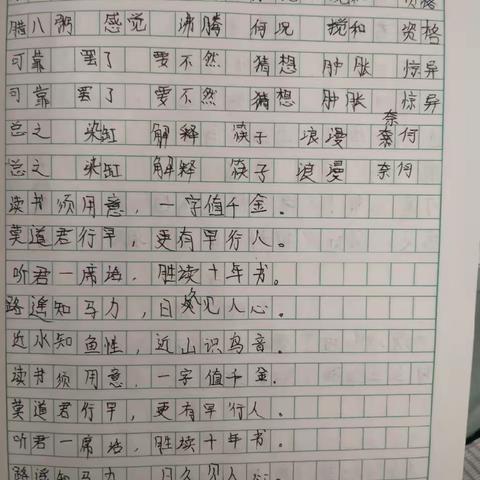 腊八粥 感觉 沸腾 何况 搅和 资格
可靠 罢了 要不然 猜想 肿胀 惊异
可靠 罢了 要不然 猜想 肿胀 惊异
奈
总之 染缸 解释 筷子 浪漫 奈何
总之 染缸 解释 筷子 浪漫 奈何
读书须用意，一字值千金。
莫道君行早，更有早行人。
听君一席话，胜读十年书。
路遥知马力，日久见人心。
近水知鱼性，近山识鸟音。
读书须用意，一字值千金.
莫道君行早，更有早行人.
听君一席话，胜读十年书.
路遥知马力，日久见人心.